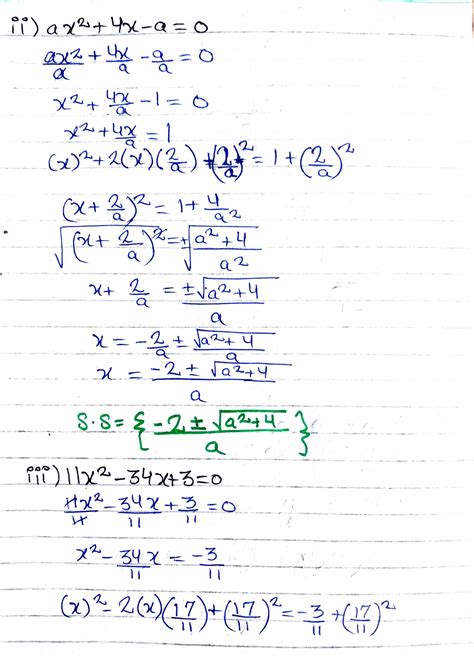 ii) ax² + 4x - a = 0
ax²/a + 4x/a - a/a = 0
x² + 4x/a - 1 = 0
x² + 4x/a = 1
(x)² + 2(x)(2/a) + (2/a)² = 1 + (2/a)²
(x + 2/a)² = 1 + 4/a²
√(x + 2/a)² = ±√(a² + 4)/a²
x + 2/a = ±√(a² + 4)/a
x = -2/a ± √(a² + 4)/a
x = -2 ± √(a² + 4)/a
S.S = {-2 ± √(a² + 4)/a}
iii) 11x² - 34x + 3 = 0
11x²/11 - 34x/11 + 3/11 = 0
x² - 34x/11 = -3/11
(x)² - 2(x)(17/11) + (17/11)² = -3/11 + (17/11)²